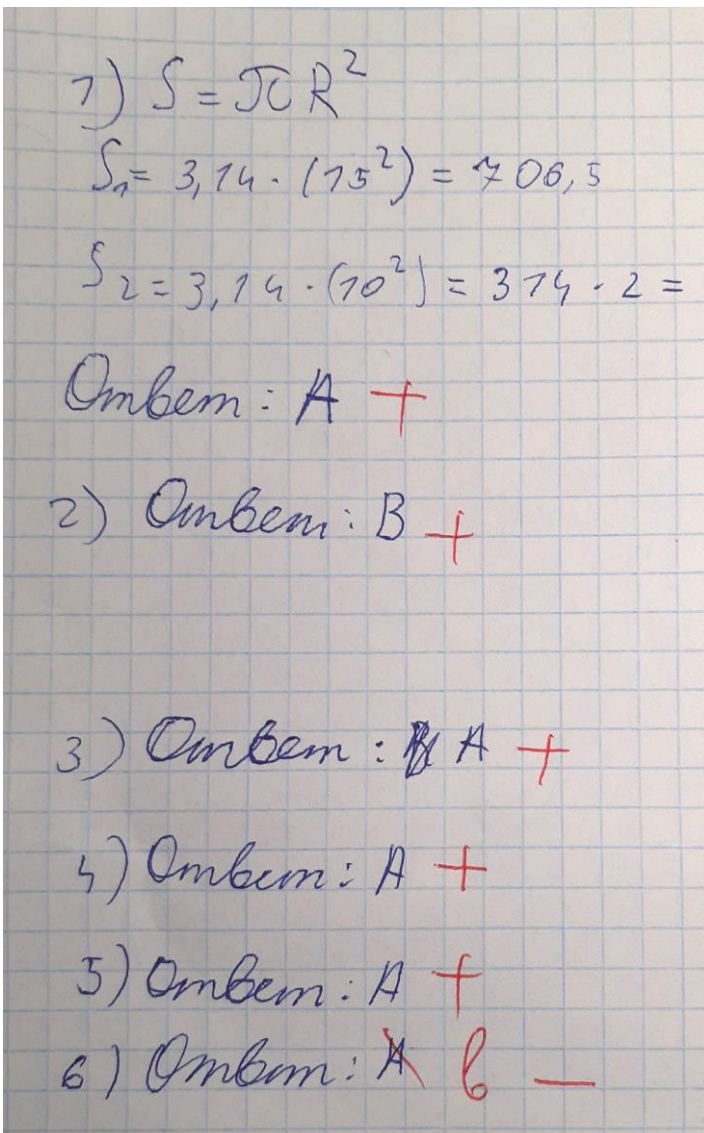 1) S = πR²
S₁ = 3,14 · (15²) = 706,5
S₂ = 3,14 · (10²) = 314 · 2 =
Ответ: А +
2) Ответ: В +
3) Ответ: А +
4) Ответ: А +
5) Ответ: А +
6) Ответ: А в —